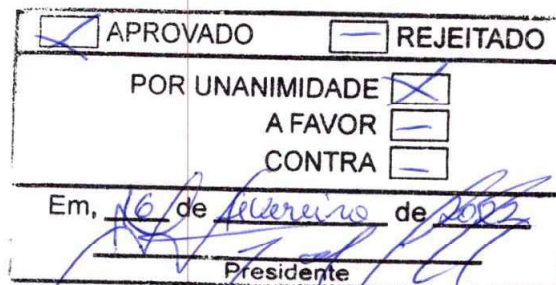 APROVADO REJEITADO
POR UNANIMIDADE
A FAVOR
CONTRA
Em, 16 de fevereiro de
Presidente